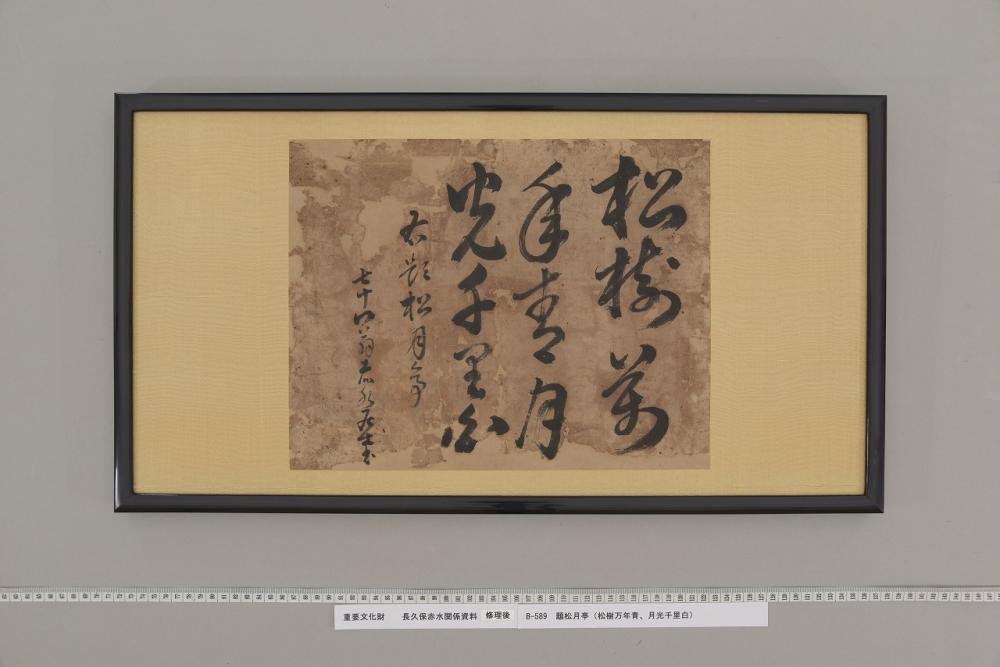 松樹萬
年青月
光千里白
右題松月亭
七十四翁赤水居士書
重要文化財　長久保赤水関係資料　修理後　B-589　題松月亭（松樹万年青、月光千里白）